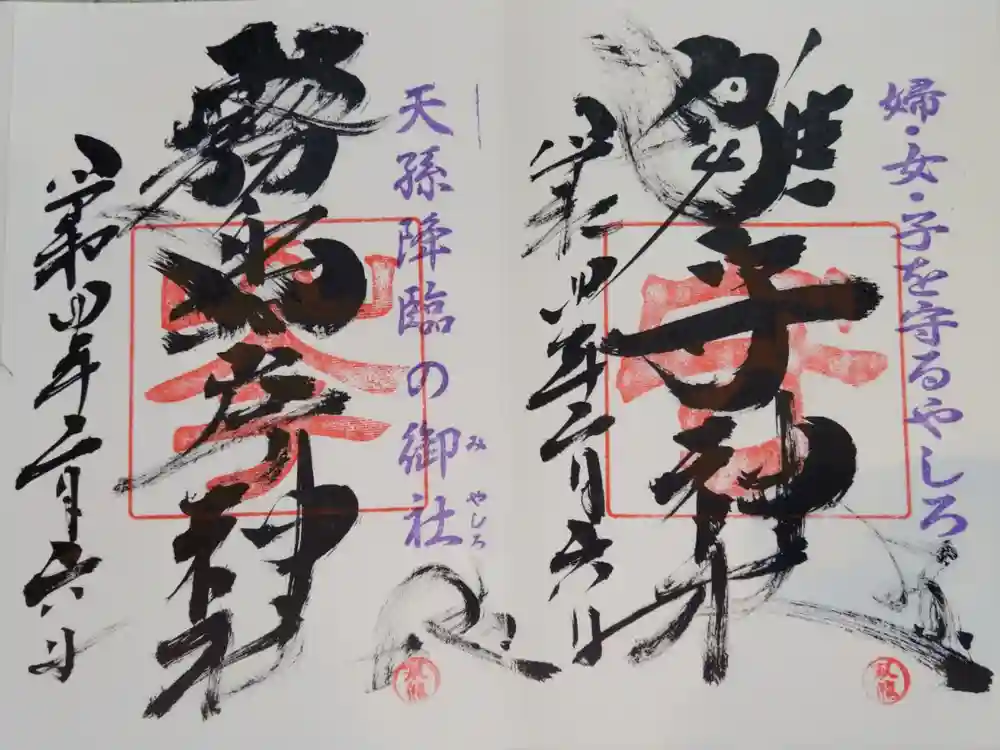 婦・女・子を守るやしろ
雛守神社
令和四年二月六日
天孫降臨の御社
み やしろ
霧島岑神社
令和四年二月六日